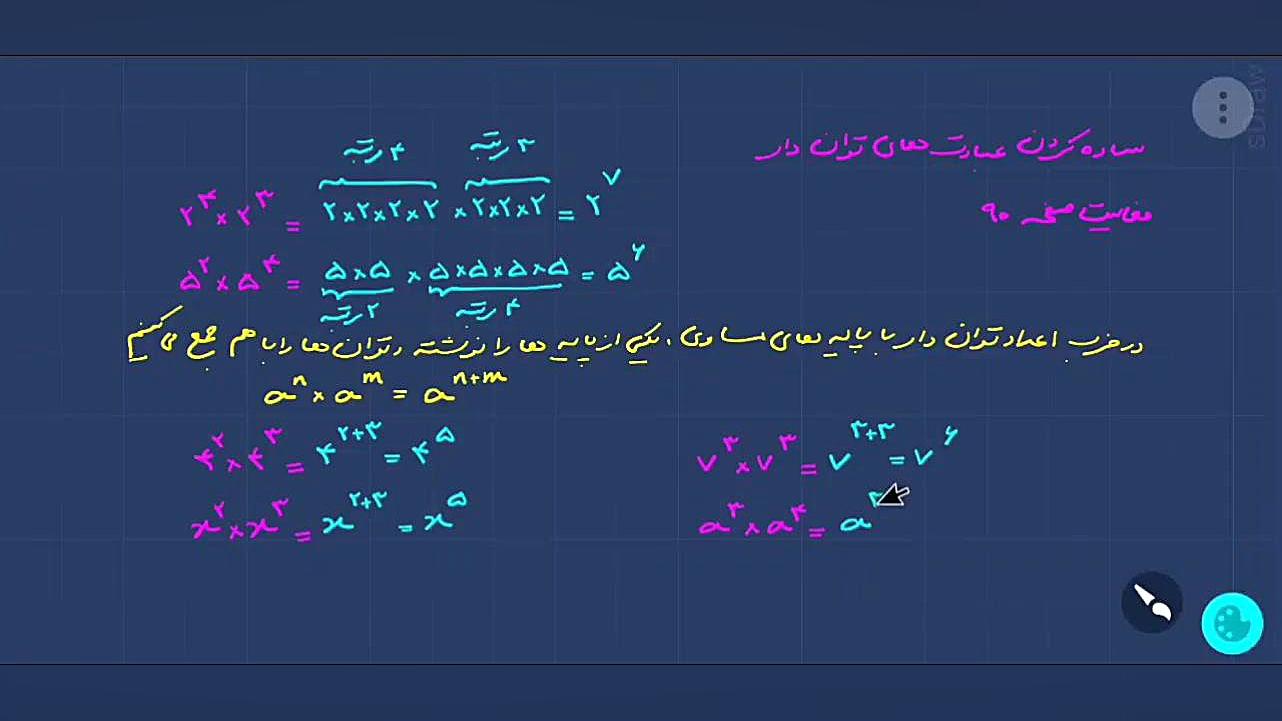 ساده کردن عبارت های توان دار
فعالیت صفحه ۹۰
۴ مرتبه ۳ مرتبه
۲^۴ × ۲^۳ = ۲×۲×۲×۲ × ۲×۲×۲ = ۲^۷
۵^۲ × ۵^۴ = ۵×۵ × ۵×۵×۵×۵ = ۵^۶
۲ مرتبه ۴ مرتبه
در ضرب اعداد توان دار با پایه های مساوی، یکی از پایه ها را نوشته و توان ها را با هم جمع می کنیم
a^n × a^m = a^{n+m}
۴^۲ × ۴^۳ = ۴^{۲+۳} = ۴^۵
۷^۳ × ۷^۳ = ۷^{۳+۳} = ۷^۶
x^۲ × x^۳ = x^{۲+۳} = x^۵
a^۳ × a^۴ = a